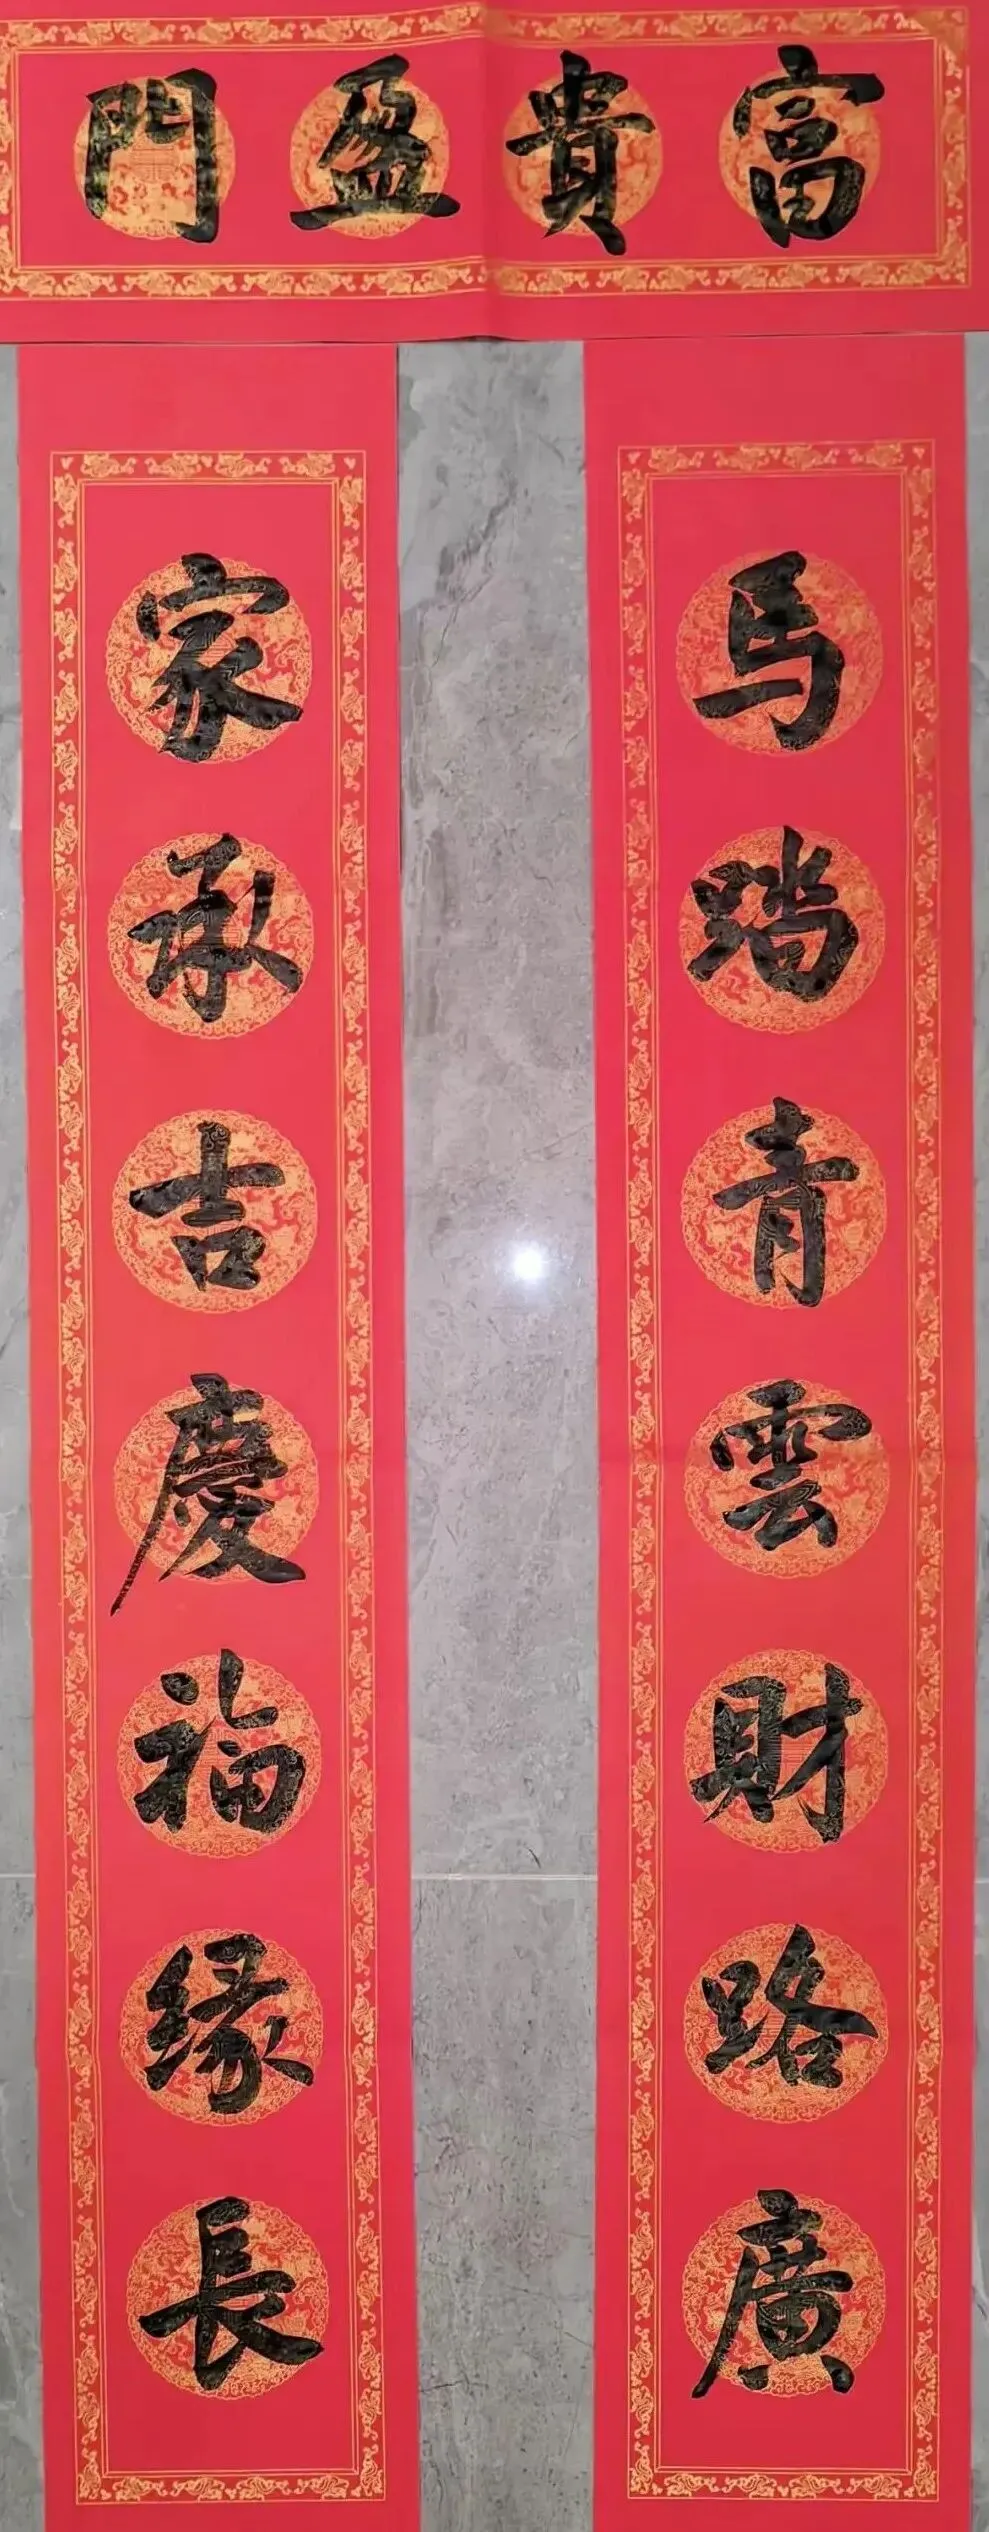 富貴盈門
马踏青雲財路廣
家承吉慶福缘長